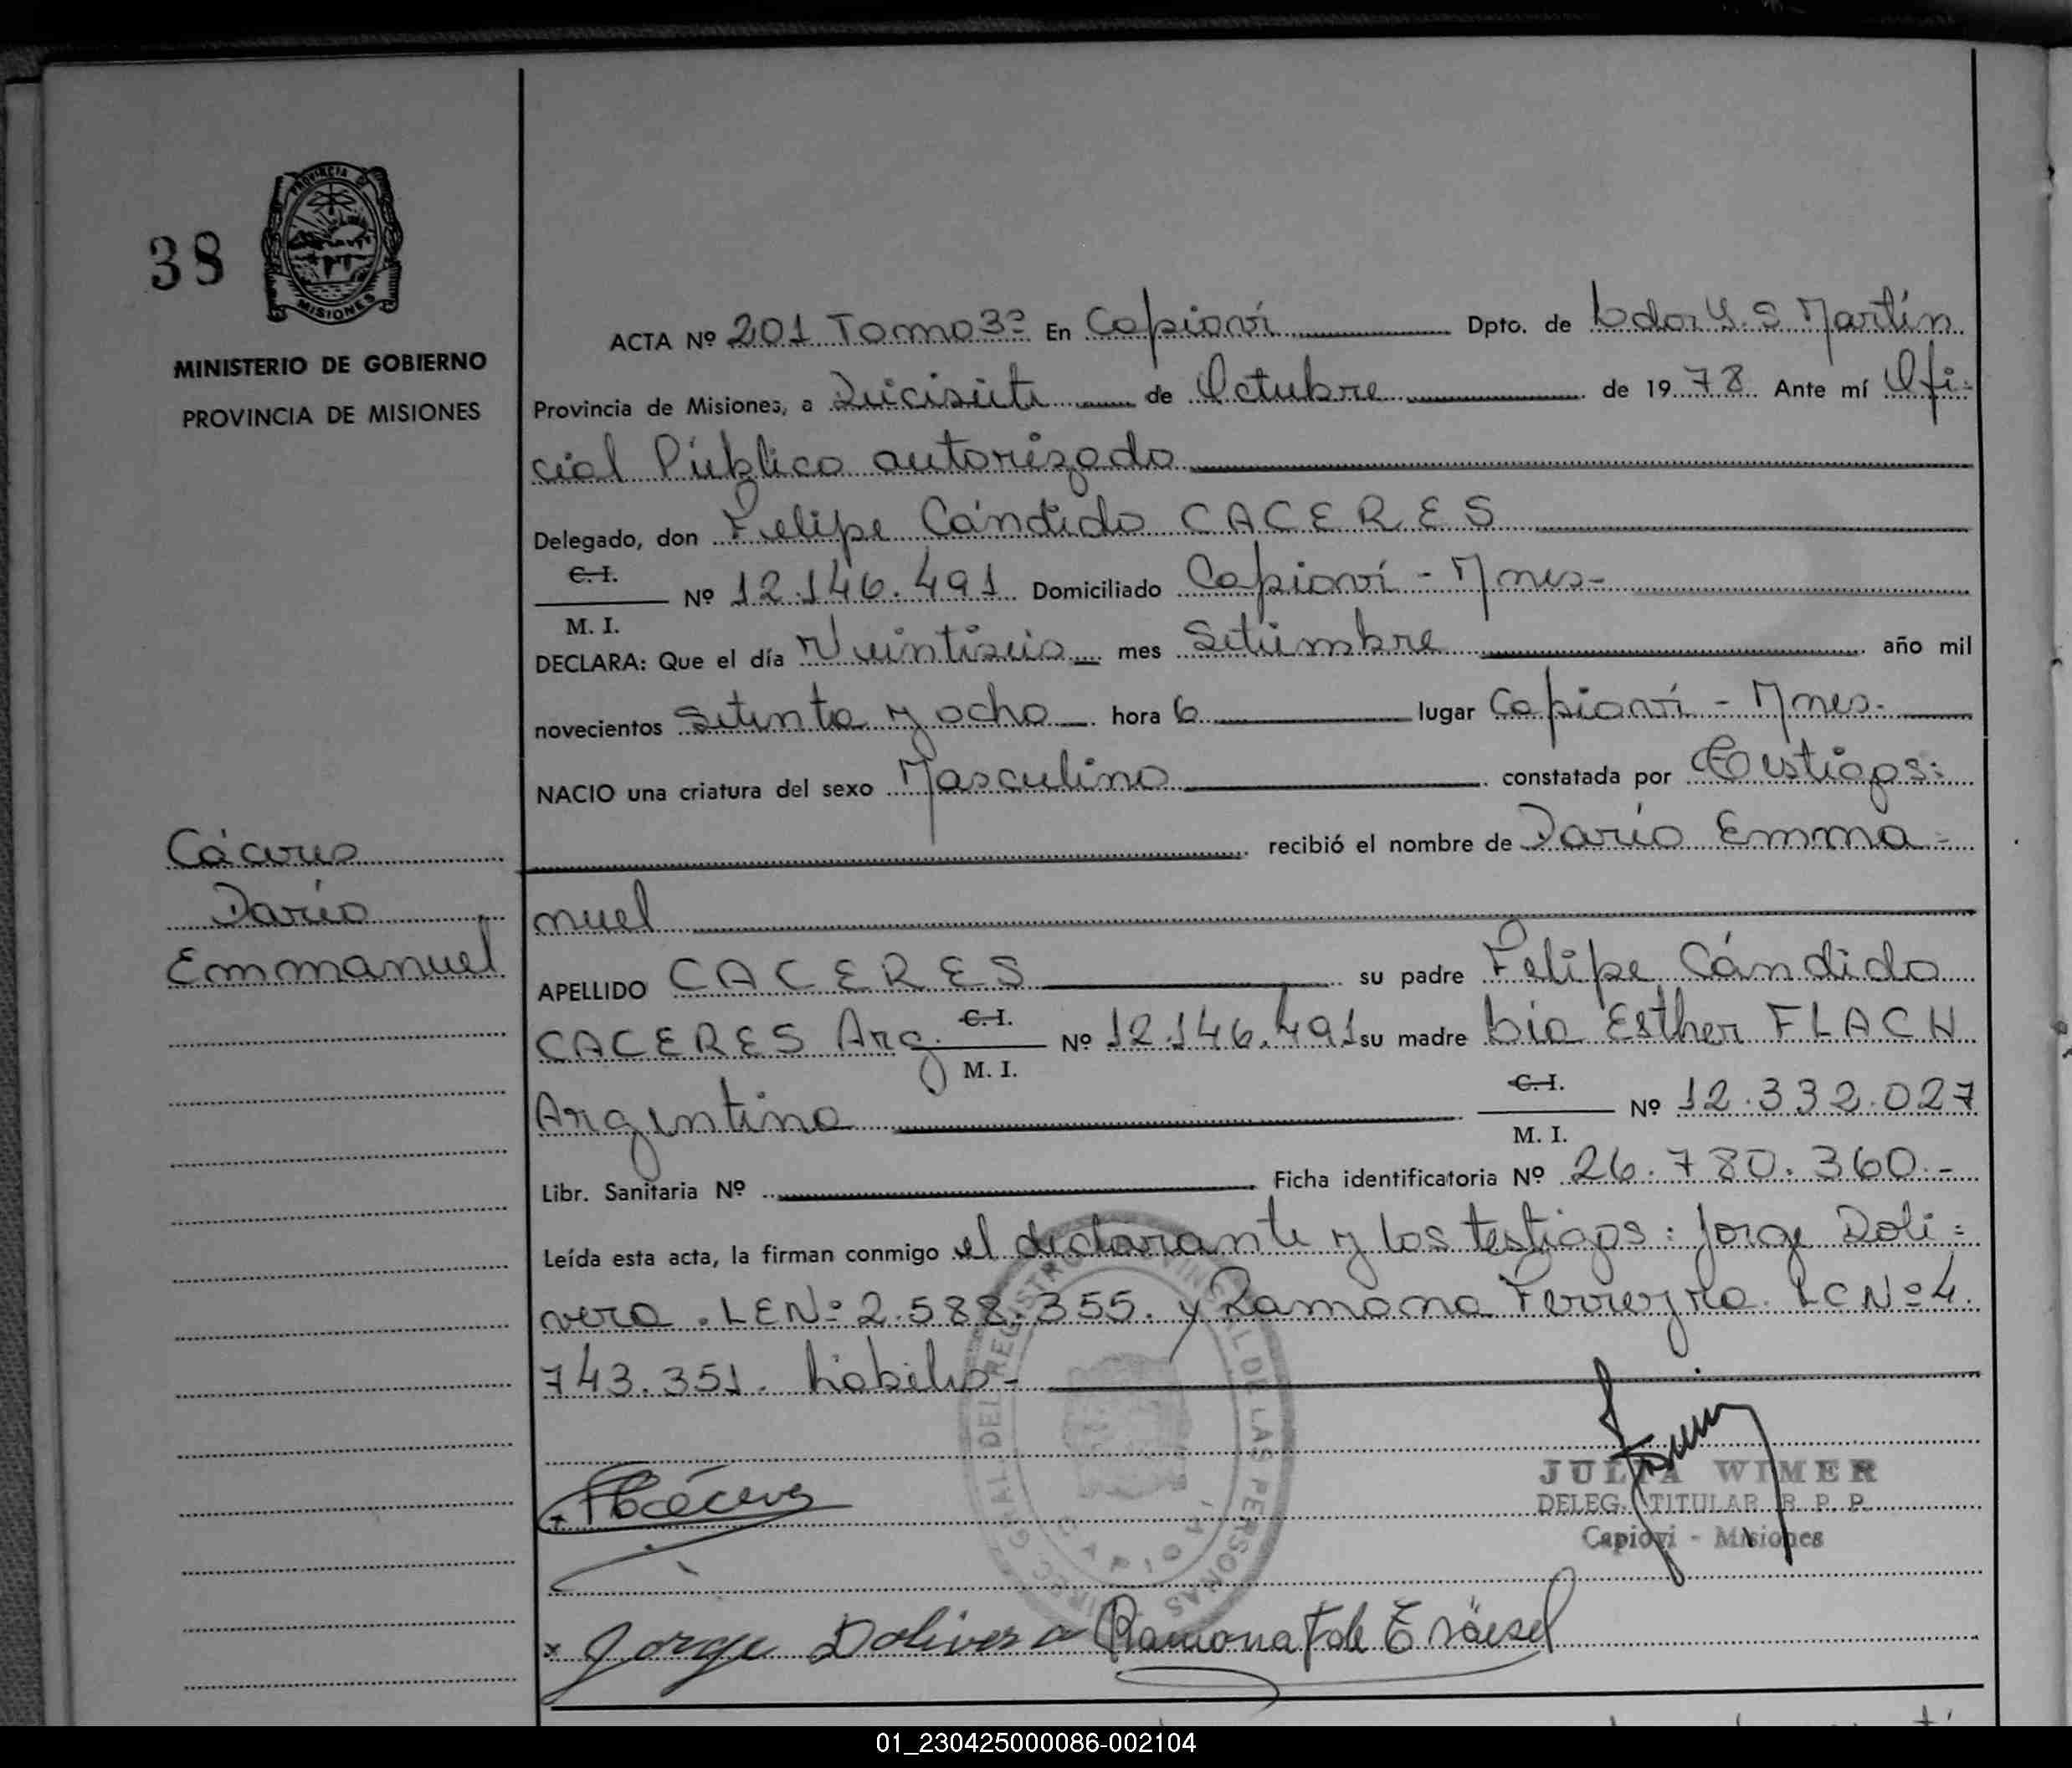 38
PROVINCIA DE
MISIONES
MINISTERIO DE GOBIERNO
PROVINCIA DE MISIONES
ACTA Nº 201 Tomo 3º En Capioví Dpto. de Ldor G. S Martín
Provincia de Misiones, a Diecisiete de Octubre de 1978 Ante mí Ofi-
cial Público autorizado
Delegado, don Felipe Cándido CACERES
C. I.
Nº 12.146.491 Domiciliado Capioví - Mnes-
M. I.
DECLARA: Que el día Veintiseis mes Setiembre año mil
novecientos Setenta y ocho hora 6 lugar Capioví - Mnes.
NACIO una criatura del sexo Masculino constatada por Testigos:
recibió el nombre de Darío Emma-
nuel
Cáceres
Darío
Emmanuel
APELLIDO CACERES su padre Felipe Cándido
CACERES Arg. C. I. Nº 12.146.491 su madre Lia Esther FLACH
M. I.
Argentina C. I. Nº 12.332.027
M. I.
Libr. Sanitaria Nº Ficha identificatoria Nº 26.780.360.-
Leída esta acta, la firman conmigo el declarante y los testigos: Jorge Doli-
vera. LE Nº 2.588.355. y Ramona Ferreyra. LC Nº 4.
743.351. hábiles-
JULIA WIMER
DELEG. TITULAR R. P. P.
Capioví - Misiones
FCáceres
Jorge Dolivera Ramona F de
01_230425000086-002104